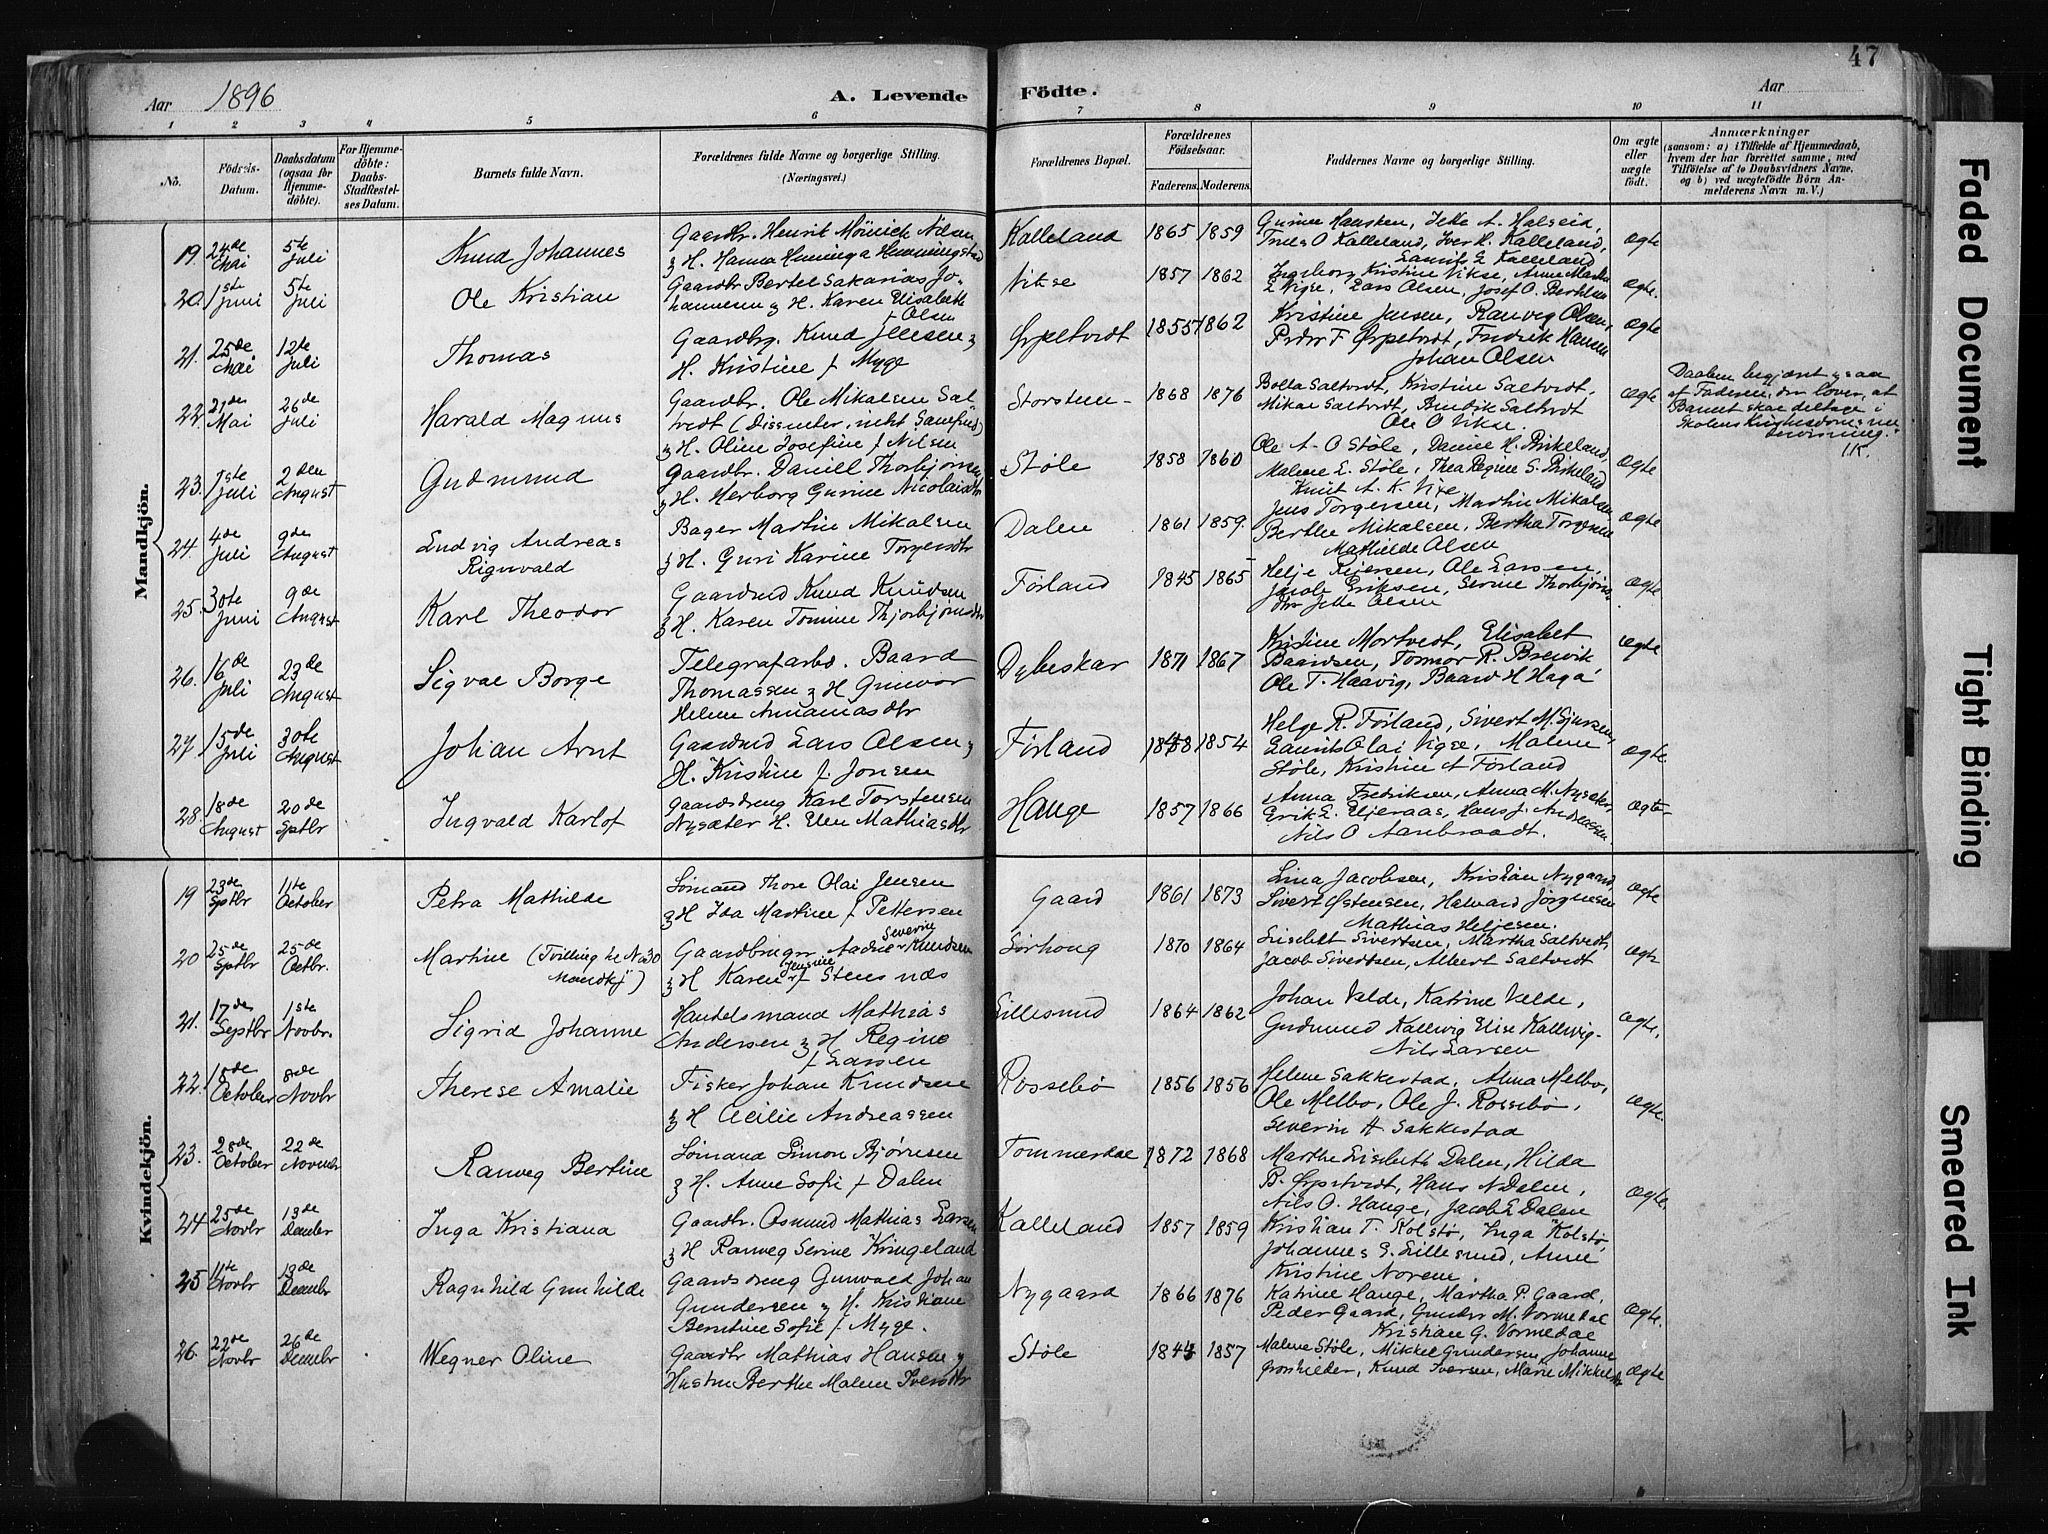 47
Aar 1896
A. Levende Födte.
Aar
1 2 3 4 5 6 7 8 9 10 11
No.
Födsels-Datum.
Daabsdatum (ogsaa for Hjemmedöbte).
For Hjemmedöbte: Daabs-Stadfestelses Datum.
Barnets fulde Navn.
Forældrenes fulde Navne og borgerlige Stilling.
(Næringsvei.)
Forældrenes Bopæl.
Forældrenes Födselsaar.
Faderens. Moderens.
Faddernes Navne og borgerlige Stilling.
Om ægte eller uægte födt.
Anmærkninger
(saasom: a) i Tilfælde af Hjemmedaab, hvem der har forrettet samme, med Tilföielse af to Daabsvidners Navne, og b) ved uægtefödte Börn Anmelderens Navn m. V.)
Mandkjön.
19. 24de Mai 5te Juli Knud Johannes
Gaardbr. Henrik Mönick Nilsen
& H. Hanna Henninga Henningstad
Kalleland 1865 1859
Gurine Haasken, Jette A. Halseid,
Truls O Kalleland, Iver H. Kalleland,
Laurits E Kalleland
Ægte
20. 1ste Juni 5te Juli Ole Kristian
Gaardbr Bertel Sakarias Jo-
hannesen & H. Karen Elisabeth
f Olsen
Vikse 1857 1862
Ingeborg Kristine Vikse, Anne Marthe
E Vigse, Lars Olsen, Josef O. Berthsen
Ægte.
21. 25de Mai 12te Juli Thomas
Gaardbrg. Knud Jellesen &
H. Kristine f Myge
Ørpetvedt 1855 1862
Kristine Jensen, Ranveig Olsen,
Peder F Ørpetvedt, Fredrik Hansen
Johan Olsen
Ægte
22. 21de Mai 26de Juli Harald Magnus
Gaardbr. Ole Mikalsen Sal-
tvedt (Dissenter, intet Samfund)
& H. Oline Josefine f Nilsen
Storsteen 1868 1876
Bolla Saltvedt, Kristine Saltvedt,
Mikal Saltvedt, Bendik Saltvedt
Ole O Vikse.
Ægte
Daaben begjært ogsaa
af Faderen, der lover, at
Barnet skal deltage i
Skolens Kristendomsun-
dervisning.
23. 1ste Juli 2den August Gudmund
Gaardbr. Daniel Thorbjörnsen
& H. Herborg Gurine Nicolaisdtr
Støle 1858 1860
Ole A. O Støle, Daniel H. Birkeland,
Malene E. Støle, Thea Regine S. Birkeland
Knut A. K. Vixe
Ægte
24. 4de Juli 9de August Ludvig Andreas
Rignvald
Bager Martin Mikalsen
& H. Guri Karine Torgersdtr
Dalen 1861 1859.
Jens Torgersen, Martin Mikalsen
Berthe Mikalsen, Bertha Torgersen
Mathilde Olsen
Ægte
25. 30te Juni 9de August Karl Theodor
Gaardmd Knud Knudsen
& H. Karen Tomine Thjorbjörnsdtr
Førland 1845 1865
Helje Reiersen, Ole Larsen,
Jacob Eriksen, Serine Thorbjörns-
dtr Jette Olsen
Ægte
26. 16de Juli 23de August Sigval Borge
Telegrafarbd. Baard
Thomassen & H Gunvor
Helene Ananiasdtr
Dybeskar 1871 1867
Kristine Mortvedt, Elisabet
Baardsen, Tormor R. Brevik,
Ole T. Haavig, Baard H Haga
Ægte
27. 15de Juli 30te August Johan Arnt
Gaardmd Lars Olsen &
H. Kristine f Jonsen
Førland 1854
Helge R. Førland, Sivert M. Sjursen,
Laurits Olai Vigse, Malene
Støle, Kristine A Førland
Ægte
28. 18de August 20de Septbr Ingvald Karlof
Gaardsdreng Karl Torstensen
Nysæter H. Elen Mathiasdtr
Hauge 1857 1866
Anna Fredriksen, Anna M. Nysæter
Erik E. Eljeraas, Hans J. Andreassen
Nils O Aanbraadt.
Ægte
Kvindekjön.
19 23de Septbr 11te October Petra Mathilde
Sømand Thore Olai Jensen
& H Ida Martine f Pettersen
Gaard 1861 1873
Lina Jacobsen, Kristian Nygaard,
Sivert Østensen, Halvard Jörgensen
Mathias Heljesen.
Ægte
20 25de Septbr 25de Octbr. Martine (Tvilling til No 30
Mandkj)
Gaardbruger Aadne Severin Knudsen
& H Karen Jensine f Stensnæs
Sørhoug 1870 1864
Lisebet Sivertsen, Martha Saltvedt,
Jacob Sivertsen, Albert Saltvedt
Ægte
21. 17de Septbr 1ste Novbr. Sigrid Johanne
Handelsmand Mathias
Andersen & H Regine
f Larsen
Lillesund 1864 1862
Johan Velde, Katrine Velde,
Gudmund Kallevig Elise Kallevig-
Nils Larsen
Ægte.
22. 18de October 8de Novbr Therese Amalie
Fisker Johan Knudsen
& H Cecilie Andreassen
Rossebö 1856 1856
Helene Sakkestad, Anna Melbo,
Ole Melbo, Ole J. Rossebö,
Severin H Sakkestad
Ægte.
23. 28de October 22de Novmbr Ranveg Bertine
Sømand Simon Bjørnsen
& H. Anne Sofie f Dalen
Tommerdal 1872 1868
Marthe Lisebeth Dalen, Hilda
B. Ørpetvedt, Hans N Dalen,
Nils O. Hauge, Jacob E Dalen
Ægte.
24 25de Novbr 13de Decmbr Inga Kristiana
Gaardbr. Osmund Mathias Larsen
& H Ranveg Serine Kringeland
Kalleland 1857 1859
Kristian T. Kolstø, Inga Kolstø,
Johannes G. Lillesund, Anne
Kristine Norene.
25 11te Novbr 13de Decmbr Ragnhild Gunhilde
Gaardsdreng Gunvald Johan
Gundersen & H. Kristiane
Berntine Sofie f Myge.
Nygaard 1866 1876
Katrine Hauge, Martha P. Gaard,
Peder Gaard, Gunder M. Vormedal
Kristian G. Vormedal
Ægte.
26. 22de Novbr 26de Decmbr Wegner Oline
Gaardbr Mathias Hansen &
Hustru Berthe Malene Iversdtr
Støle 1857
Malene Støle, Mikkel Gundersen, Johanne
Grønhieder, Knud Iversen, Marie Mikkelsdtr
Ægte
Faded Document
Tight Binding
Smeared Ink